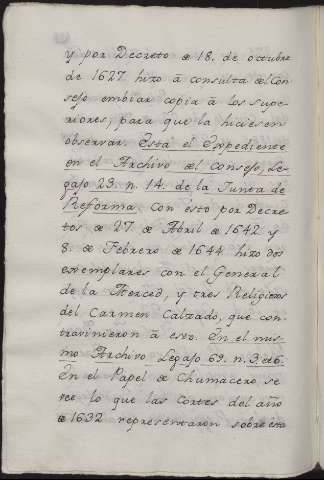 y por Decreto de 18. de octubre
de 1627 hizo à consulta del Con
sejo embiar copia à los supe-
riores, para que la hiciesen
observar. Està el Expediente
en el Archivo del Consejo, Le-
gajo 23. n. 14. de la Junta de
Reforma. Con ésto por Decre-
tos de 27 de Abril de 1642 y
8. de Febrero de 1644 hizo dos
exemplares con el General
de la Merced, y tres Religiosos
del Carmen Calzado, que con-
travinieron à esto. En el mis-
mo Archivo Legajo 69. n. 3
En el Papel de Chumacero se
vee lo que las Cortes del año
de 1632 representaron sobre esta